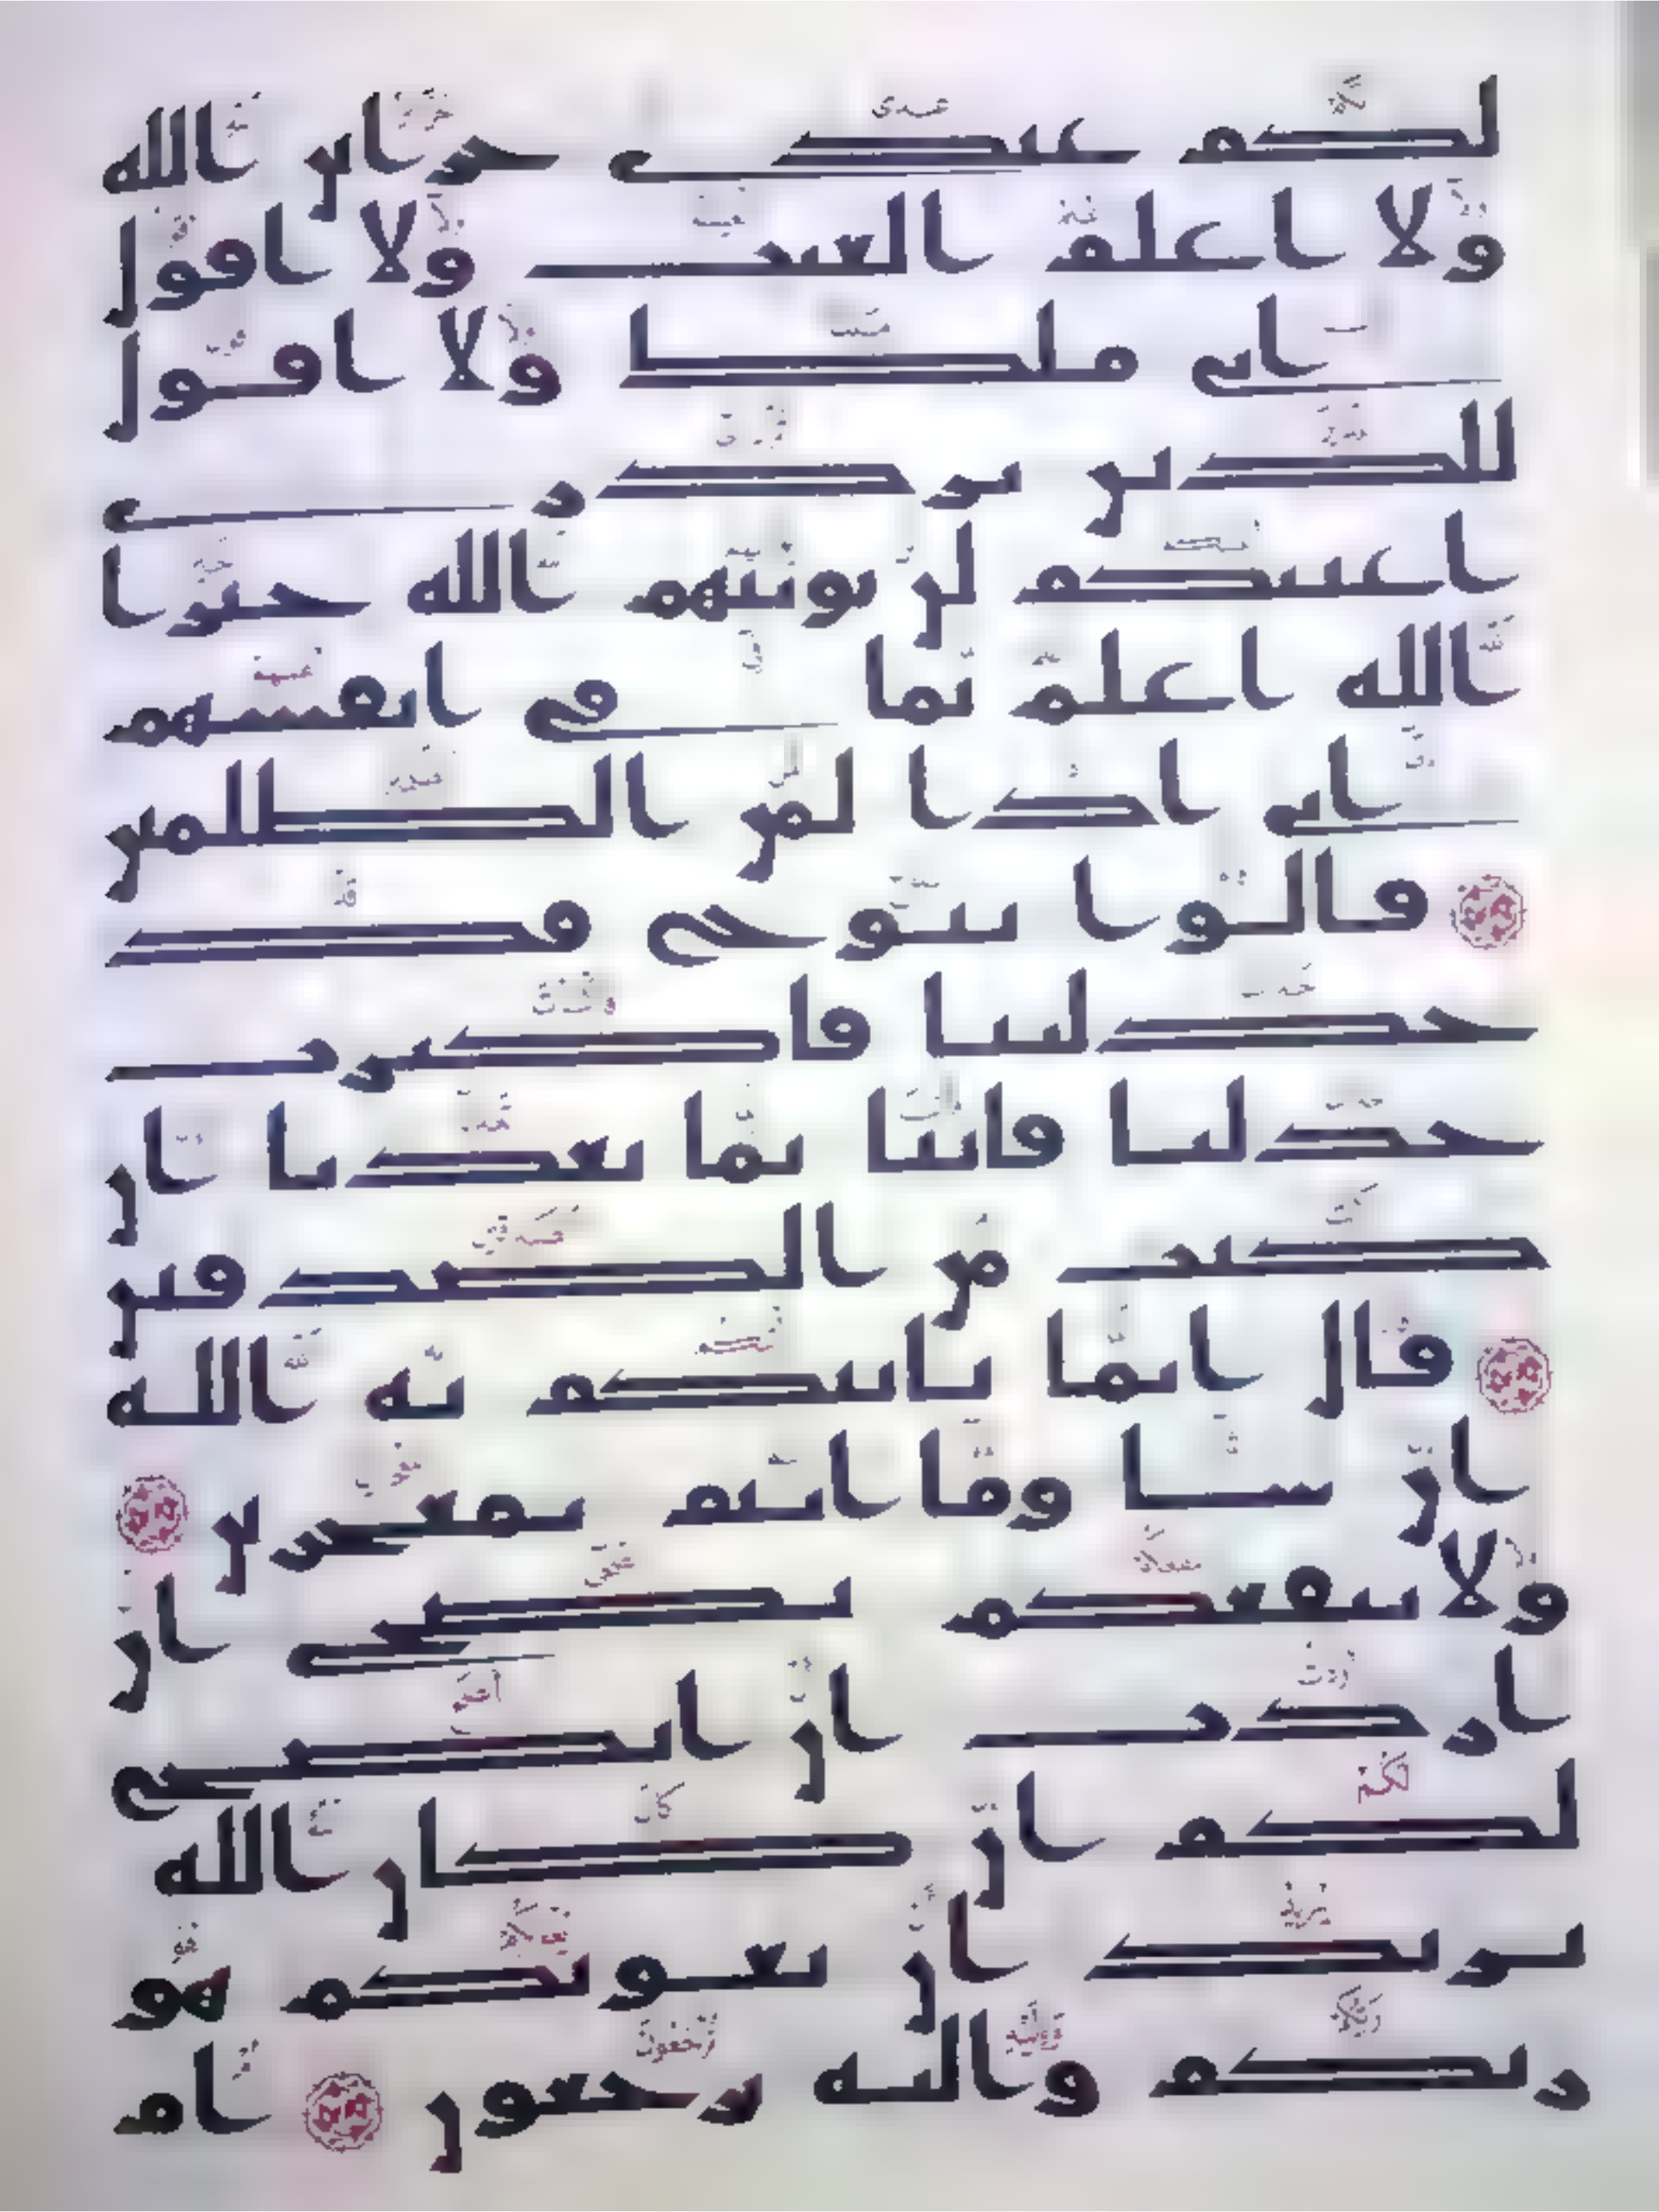 لكم عندي خزاين الله
ولا اعلم الغيب ولا اقول
اني ملك ولا اقول
للذين تزدري
اعينكم لن يوتيهم الله خيرا
الله اعلم بما في انفسهم
اني اذا لمن الظلمين
قالوا ينوح قد
جدلتنا فاكثرت
جدلنا فاتنا بما تعدنا ان
كنت من الصدقين
قال انما ياتيكم به الله
ان شا وما انتم بمعجزين
ولا ينفعكم نصحي ان
اردت ان انصح
لكم ان كان الله
يريد ان يغويكم هو
ربكم واليه ترجعون ام